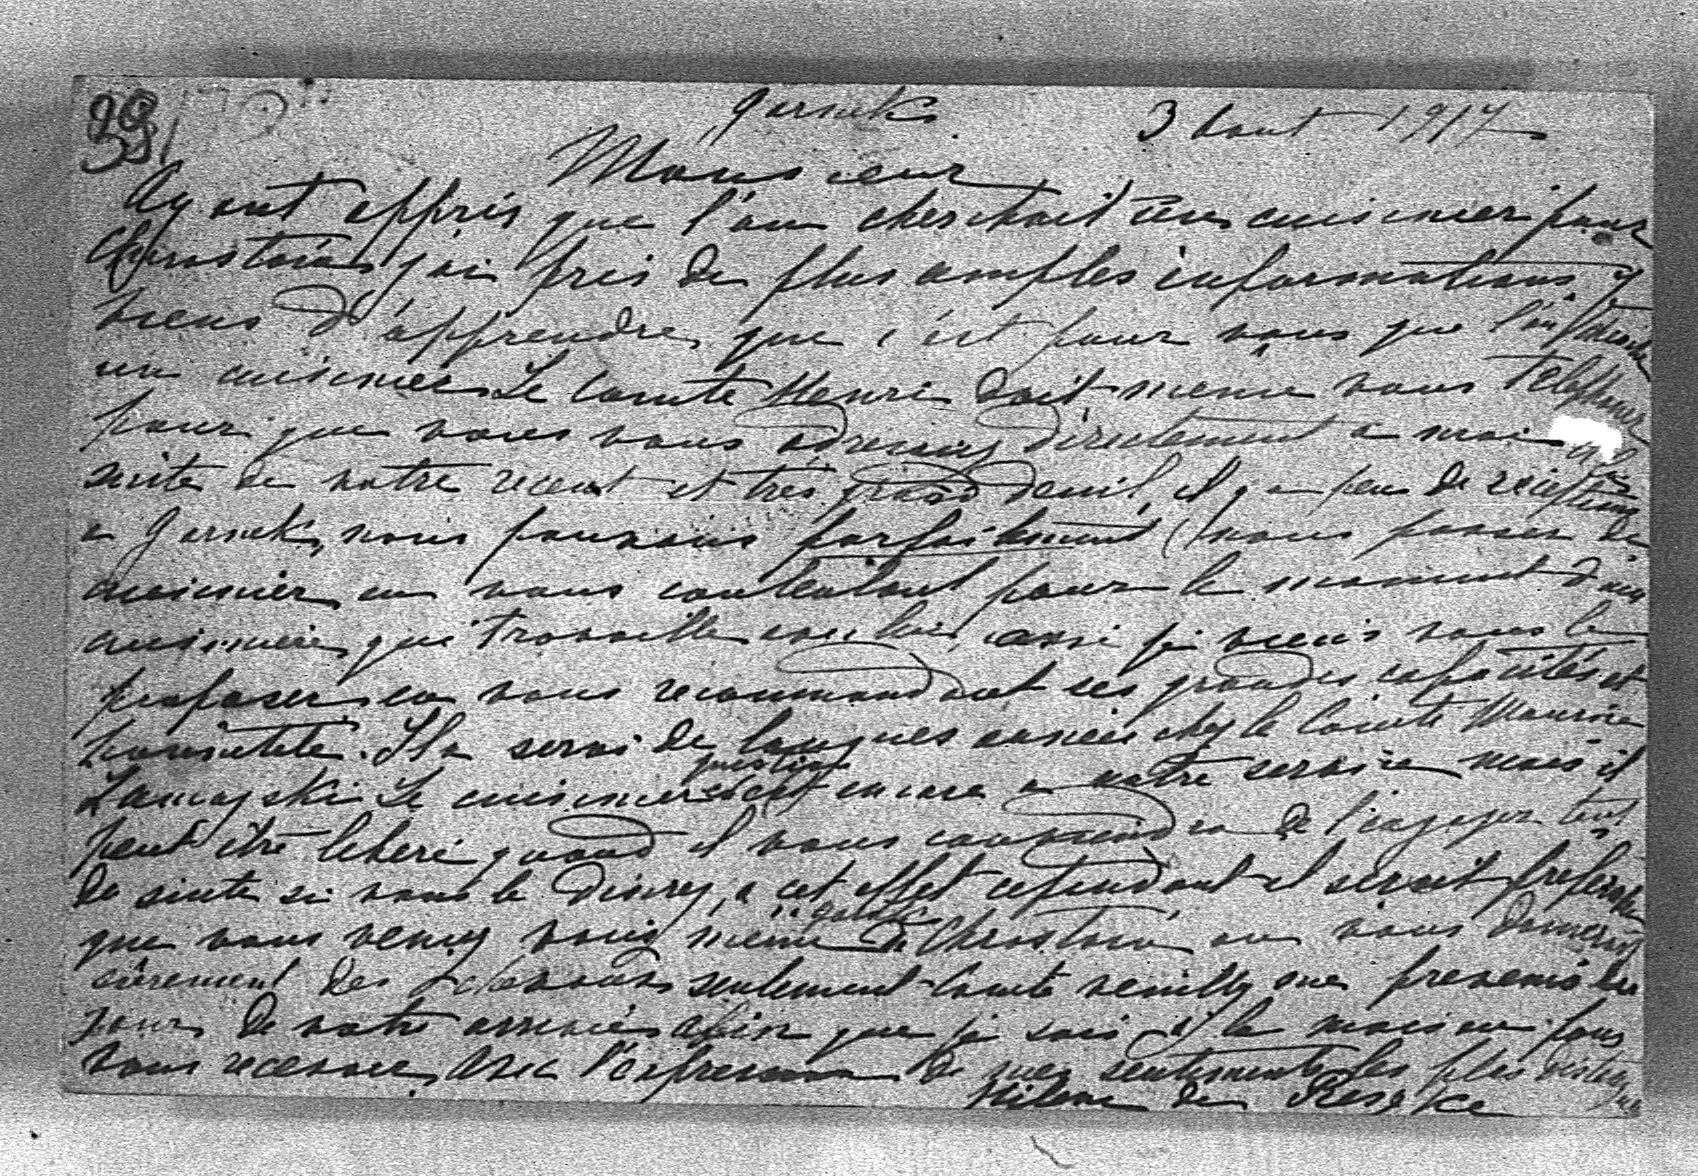 29
381
Garnek 3 aout 1917
Monsieur
Ayant appris que l'on cherchait un cuisinier pour
Chrostowa j'ai pris de plus amples informations et
viens d'apprendre que c'est pour vous que l'on cherche
un cuisinier. Le Comte Henri doit même vous telephoner
pour que vous vous adressiez directement a moi
suite de notre recent et très grand deuil, il y a peu de receptions
a Garnek, nous pouvons parfaitement nous passer de
cuisinier en nous contentant pour le moment d'une
cuisinière qui travaille avec lui, aussi je viens vous le
proposer en vous recommandant ses grandes capacités et
honnêteté. Il a servi de longues années chez le Comte Maurice
Zamoyski. Le cuisinier en question est encore a notre service mais il
peut être liberé quand il vous conviendra de l'engager tout
de suite si vous le desirez, a cet effet cependant il serait preferable
que vous veniez vous même de Chrostowa ou vous donneriez
surement des chevaux seulement Comte veuillez me prevenir du
jour de votre arrivée afin que je sois a la maison pour
vous recevoir. Avec l'expression de mes sentiments les plus distingués
Hélène de Reszke